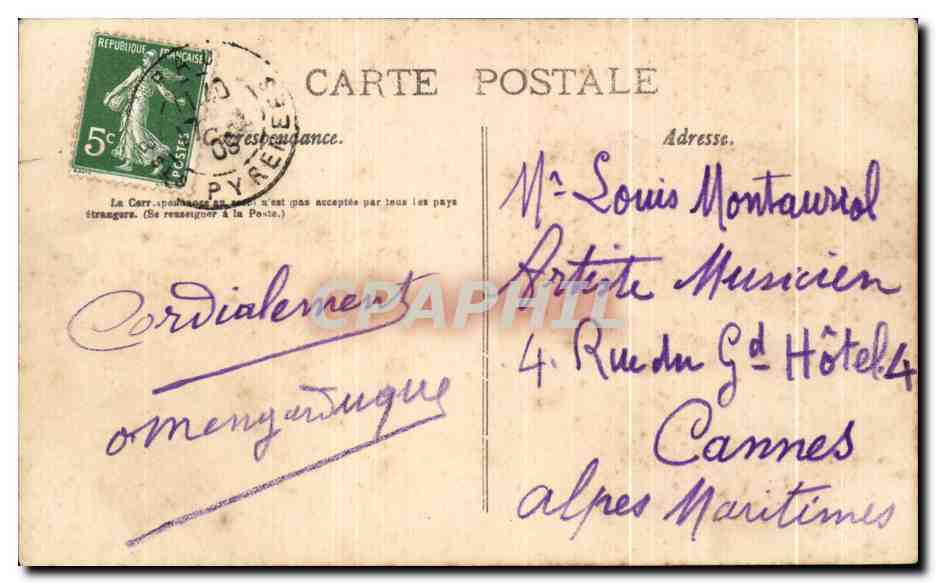 REPUBLIQUE FRANÇAISE
5c
POSTES
PAU
PYRENEES
CARTE POSTALE
Correspondance.
Adresse.
La Correspondance au recto n'est pas acceptée par tous les pays
étrangers. (Se renseigner à la Poste.)
Mr Louis Montauriol
Artiste Musicien
4. Rue du Gd Hôtel.4
Cannes
Alpes Maritimes
Cordialement
CPAPHIL